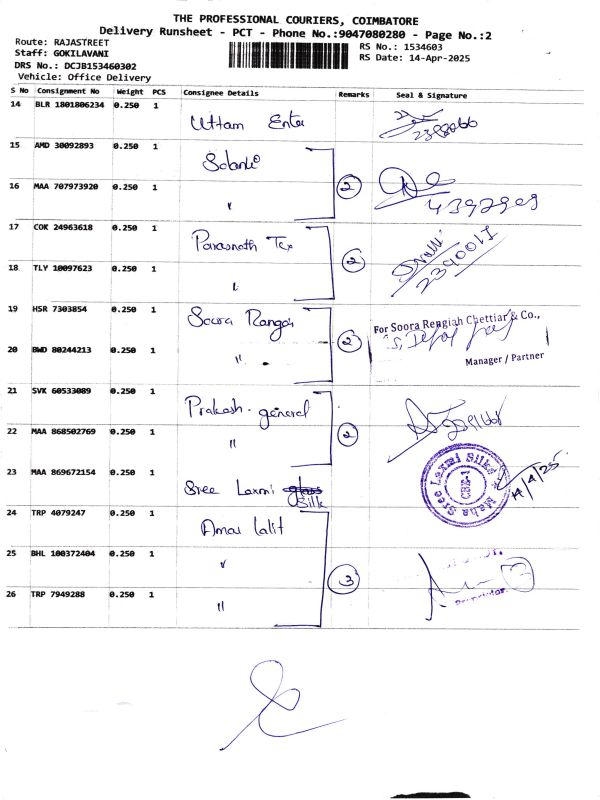 THE PROFESSIONAL COURIERS, COIMBATORE
Delivery Runsheet - PCT - Phone No.:9047080280 - Page No.:2
Route: RAJASTREET
Staff: GOKILAVANI
DRS No.: DCJB153460302
Vehicle: Office Delivery
RS No.: 1534603
RS Date: 14-Apr-2025
S No Consignment No Weight PCS Consignee Details Remarks Seal & Signature
14 BLR 1801806234 0.250 1 Uttam Enter
15 AMD 30092893 0.250 1 Solanki
16 MAA 707973920 0.250 1 " 2
17 COK 24963618 0.250 1 Parasnath Tex 2390011
18 TLY 10097623 0.250 1 " 2
19 HSR 7303854 0.250 1 Soora Rangai For Soora Rengiah Chettiar & Co.,
20 BWD 80244213 0.250 1 " 2 Manager / Partner
21 SVK 60533089 0.250 1 Prakash general
22 MAA 868502769 0.250 1 " 2
23 MAA 869672154 0.250 1 Sree Laxmi Silk Maha Sree Laxmi Silks CBE-1 14/4/25
24 TRP 4079247 0.250 1 Amar lalit
25 BHL 100372404 0.250 1 " 3
26 TRP 7949288 0.250 1 " Proprietor